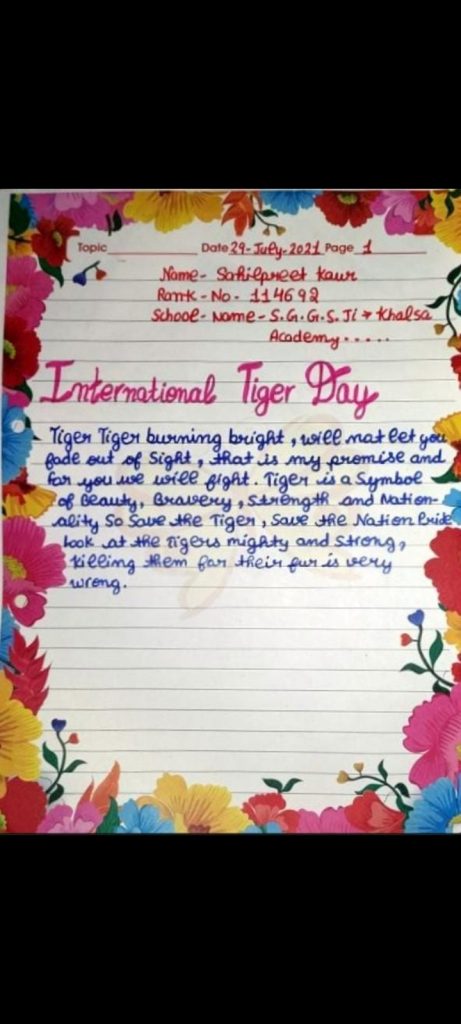 Topic Date 29-July-2021 Page 1
Name- Sahilpreet Kaur
Rank-No- 114692
School-Name- S.G.G.S. Ji Khalsa
Academy.....
International Tiger Day
Tiger Tiger burning bright, will not let you
fade out of sight, that is my promise and
for you we will fight. Tiger is a Symbol
of Beauty, Bravery, Strength and Nation-
ality So Save the Tiger, Save the Nation Pride
look at the Tigers mighty and strong,
killing them for their fur is very
wrong.